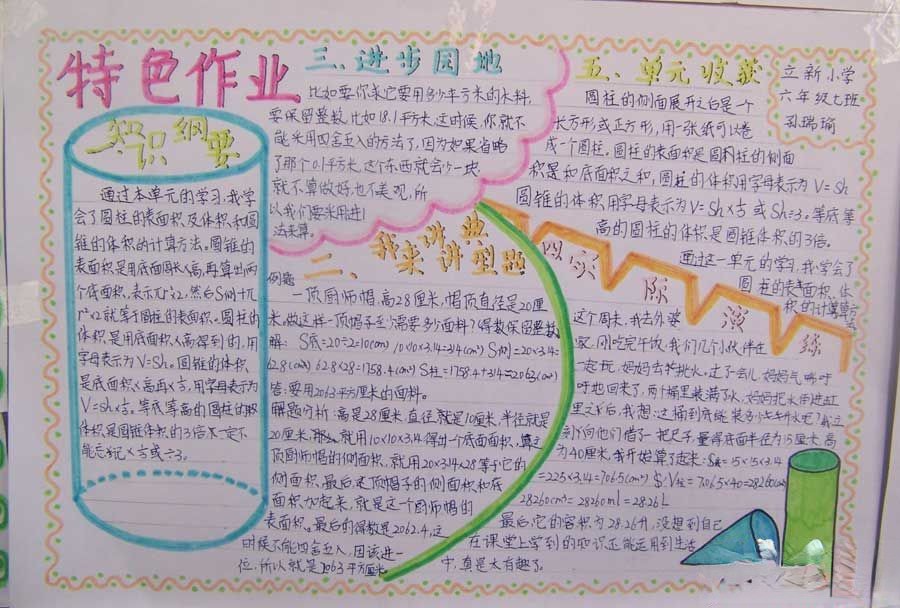 特色作业
知识纲要
通过本单元的学习,我学
会了圆柱的表面积及体积和圆
锥的体积的计算方法。圆锥的
表面积是用底面周长×高,再算出两
个底面积,表示πr²×2,然后S侧+π
r²×2就等于圆柱的表面积。圆柱的
体积是用底面积×高得到的,用
字母表示为V=Sh。圆锥的体积
是底面积×高再×⅓,用字母表示为
V=Sh×⅓。等底等高的圆柱的
体积是圆锥体积的3倍
能忘记×⅓或÷3。
三、进步园地
比如要你求它要用多少平方米的木料,
要保留整数,比如18.1平方米,这时候,你就不
能采用四舍五入的方法了,因为如果省略
了那个0.1平方米,这个东西就会少一块,
就不算做好,也不美观,所
以我们要采用进1
法来算。
二、我来讲典型题
例题
一顶厨师帽,高28厘米,帽顶直径是20厘
米,做这样一顶帽子至少需要多少面料?得数保留整数
解: S底=20÷2=10(cm) 10×10×3.14=314(cm²) S侧=20×3.14=
62.8(cm) 62.8×28=1758.4(cm²) S柱=1758.4+314≈2063(cm²)
答:要用2063平方厘米的面料。
解题分析:高是28厘米,直径就是10厘米,半径就是
20厘米,那么就用10×10×3.14得出一个底面面积,算
顶厨师帽的侧面积,就用20×3.14×28等于它的
侧面积,最后是顶帽子的侧面积和底
面积加起来,就是这个厨师帽的
表面积。最后的得数是2062.4,这
时候不能四舍五入,因该进一
位,所以就是2063平方厘米
五、单元收获
立新小学
六年级七班
孙瑞瑜
圆柱的侧面展开之白是一个
长方形或正方形,用一张纸可以卷
成一个圆柱。圆柱的表面积是圆柱的侧面
积是和底面积之和,圆柱的体积用字母表示为V=Sh
圆锥的体积用字母表示为V=Sh×⅓或Sh÷3。等底等
高的圆柱的体积是圆锥体积的3倍。
通过这一单元的学习,我学会了
圆柱的表面积、体
积的计算
四、实际演练
这个周末,我去外婆
家,刚吃完午饭,我们几个小伙伴在
一起玩,妈妈去挑水。过了一会儿,妈妈气呼呼
呼地回来了,两个桶里装满了水,妈妈把水倒进缸
里之后,我想:这桶到底能装多少水呢?我立
刻向他们借了一把尺子,量得底面半径为15厘米,高
为40厘米,我开始算了起来:S底=15×15×3.14
=225×3.14=706.5(cm²) V柱=706.5×40=28260(cm³)
28260cm³=28260ml=28.26L
最后,它的容积为28.26升,没想到自己
在课堂上学到的知识还能运用到生活
中,真是太有趣了。